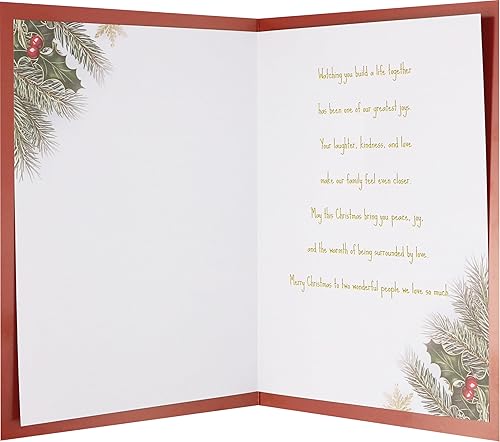 Watching you build a life together
has been one of our greatest joys.
Your laughter, kindness, and love
make our family feel even closer.
May this Christmas bring you peace, joy,
and the warmth of being surrounded by love.
Merry Christmas to two wonderful people we love so much.